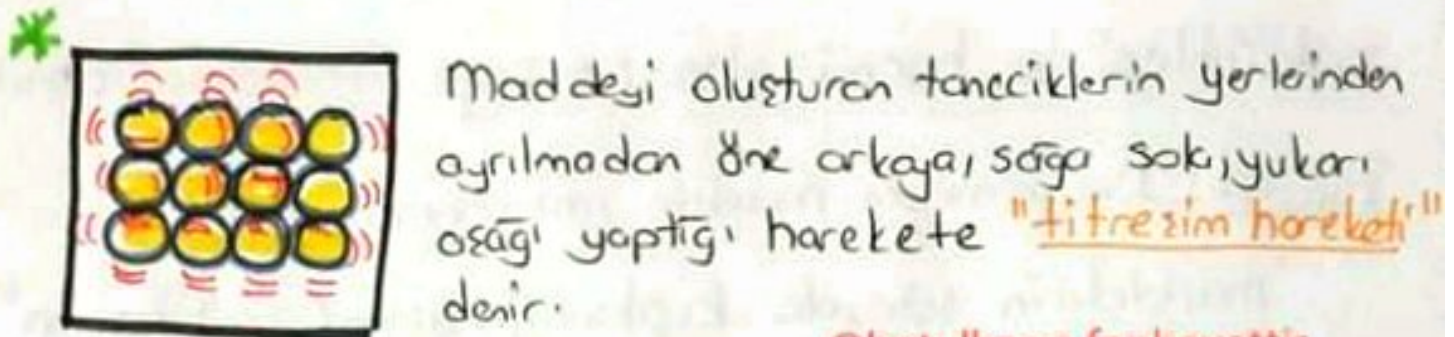 Maddeyi oluşturan taneciklerin yerlerinden
ayrılmadan öne arkaya, sağa sola, yukarı
aşağı yaptığı harekete "titreşim hareketi"
denir.